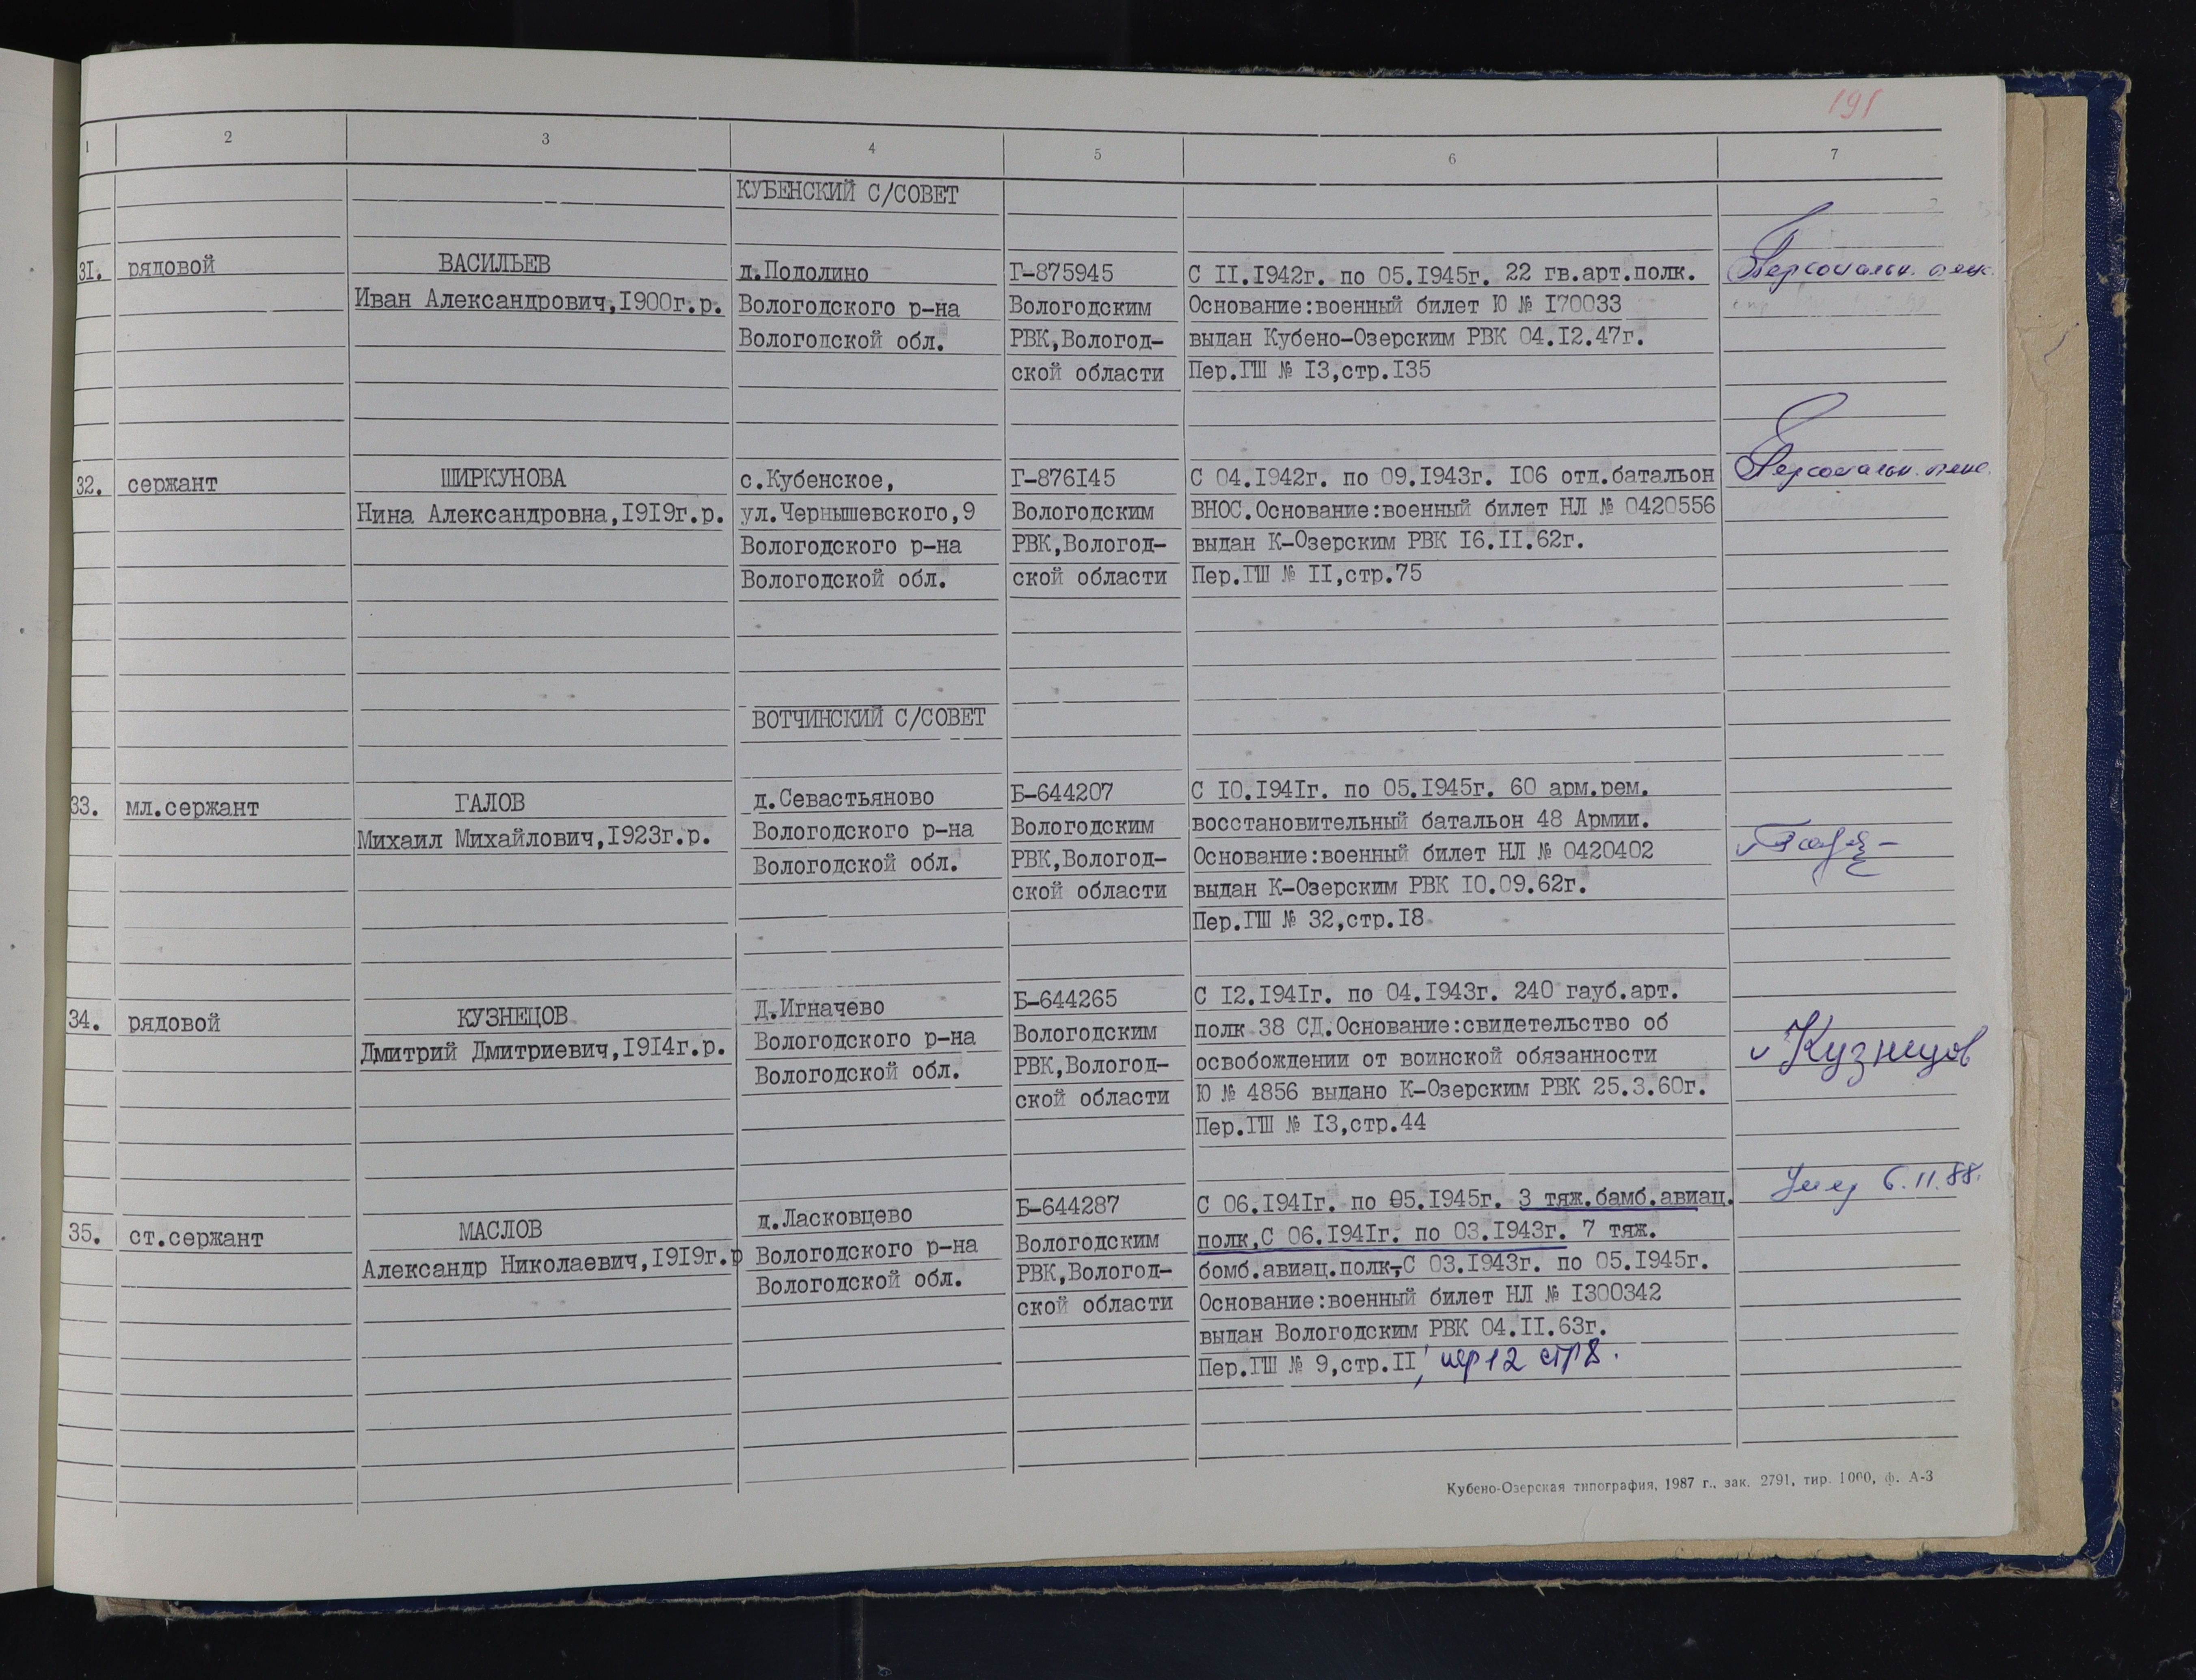 191
1 2 3 4 5 6 7
КУБЕНСКИЙ С/СОВЕТ
31. рядовой
ВАСИЛЬЕВ
Иван Александрович,1900г.р.
д.Подолино
Вологодского р-на
Вологодской обл.
Г-875945
Вологодским
РВК,Вологод-
ской области
С 11.1942г. по 05.1945г. 22 гв.арт.полк.
Основание:военный билет Ю № 170033
выдан Кубено-Озерским РВК 04.12.47г.
Пер.ГШ № 13,стр.135
Персональн. пенс.
32. сержант
ШИРКУНОВА
Нина Александровна,1919г.р.
с.Кубенское,
ул.Чернышевского,9
Вологодского р-на
Вологодской обл.
Г-876145
Вологодским
РВК,Вологод-
ской области
С 04.1942г. по 09.1943г. 106 отд.батальон
ВНОС.Основание:военный билет НЛ № 0420556
выдан К-Озерским РВК 16.11.62г.
Пер.ГШ № 11,стр.75
Персональн. пенс.
ВОТЧИНСКИЙ С/СОВЕТ
33. мл.сержант
ГАЛОВ
Михаил Михайлович,1923г.р.
д.Севастьяново
Вологодского р-на
Вологодской обл.
Б-644207
Вологодским
РВК,Вологод-
ской области
С 10.1941г. по 05.1945г. 60 арм.рем.
восстановительный батальон 48 Армии.
Основание:военный билет НЛ № 0420402
выдан К-Озерским РВК 10.09.62г.
Пер.ГШ № 32,стр.18
34. рядовой
КУЗНЕЦОВ
Дмитрий Дмитриевич,1914г.р.
Д.Игначево
Вологодского р-на
Вологодской обл.
Б-644265
Вологодским
РВК,Вологод-
ской области
С 12.1941г. по 04.1943г. 240 гауб.арт.
полк 38 СД.Основание:свидетельство об
освобождении от воинской обязанности
Ю № 4856 выдано К-Озерским РВК 25.3.60г.
Пер.ГШ № 13,стр.44
Кузнецов
35. ст.сержант
МАСЛОВ
Александр Николаевич,1919г.р
д.Ласковцево
Вологодского р-на
Вологодской обл.
Б-644287
Вологодским
РВК,Вологод-
ской области
С 06.1941г. по 05.1945г. 3 тяж.бамб.авиац.
полк,С 06.1941г. по 03.1943г. 7 тяж.
бомб.авиац.полк-С 03.1943г. по 05.1945г.
Основание:военный билет НЛ № 1300342
выдан Вологодским РВК 04.11.63г.
Пер.ГШ № 9,стр.11, пер 12 стр 8.
Умер 6.11.88.
Кубено-Озерская типография, 1987 г., зак. 2791, тир. 1000, ф. А-3